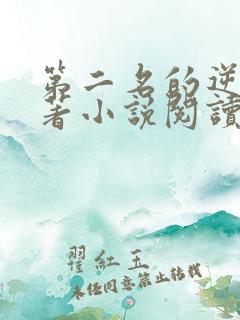 第二名的逆
著小説閱讀
翟紅玉
未经同意禁止转载